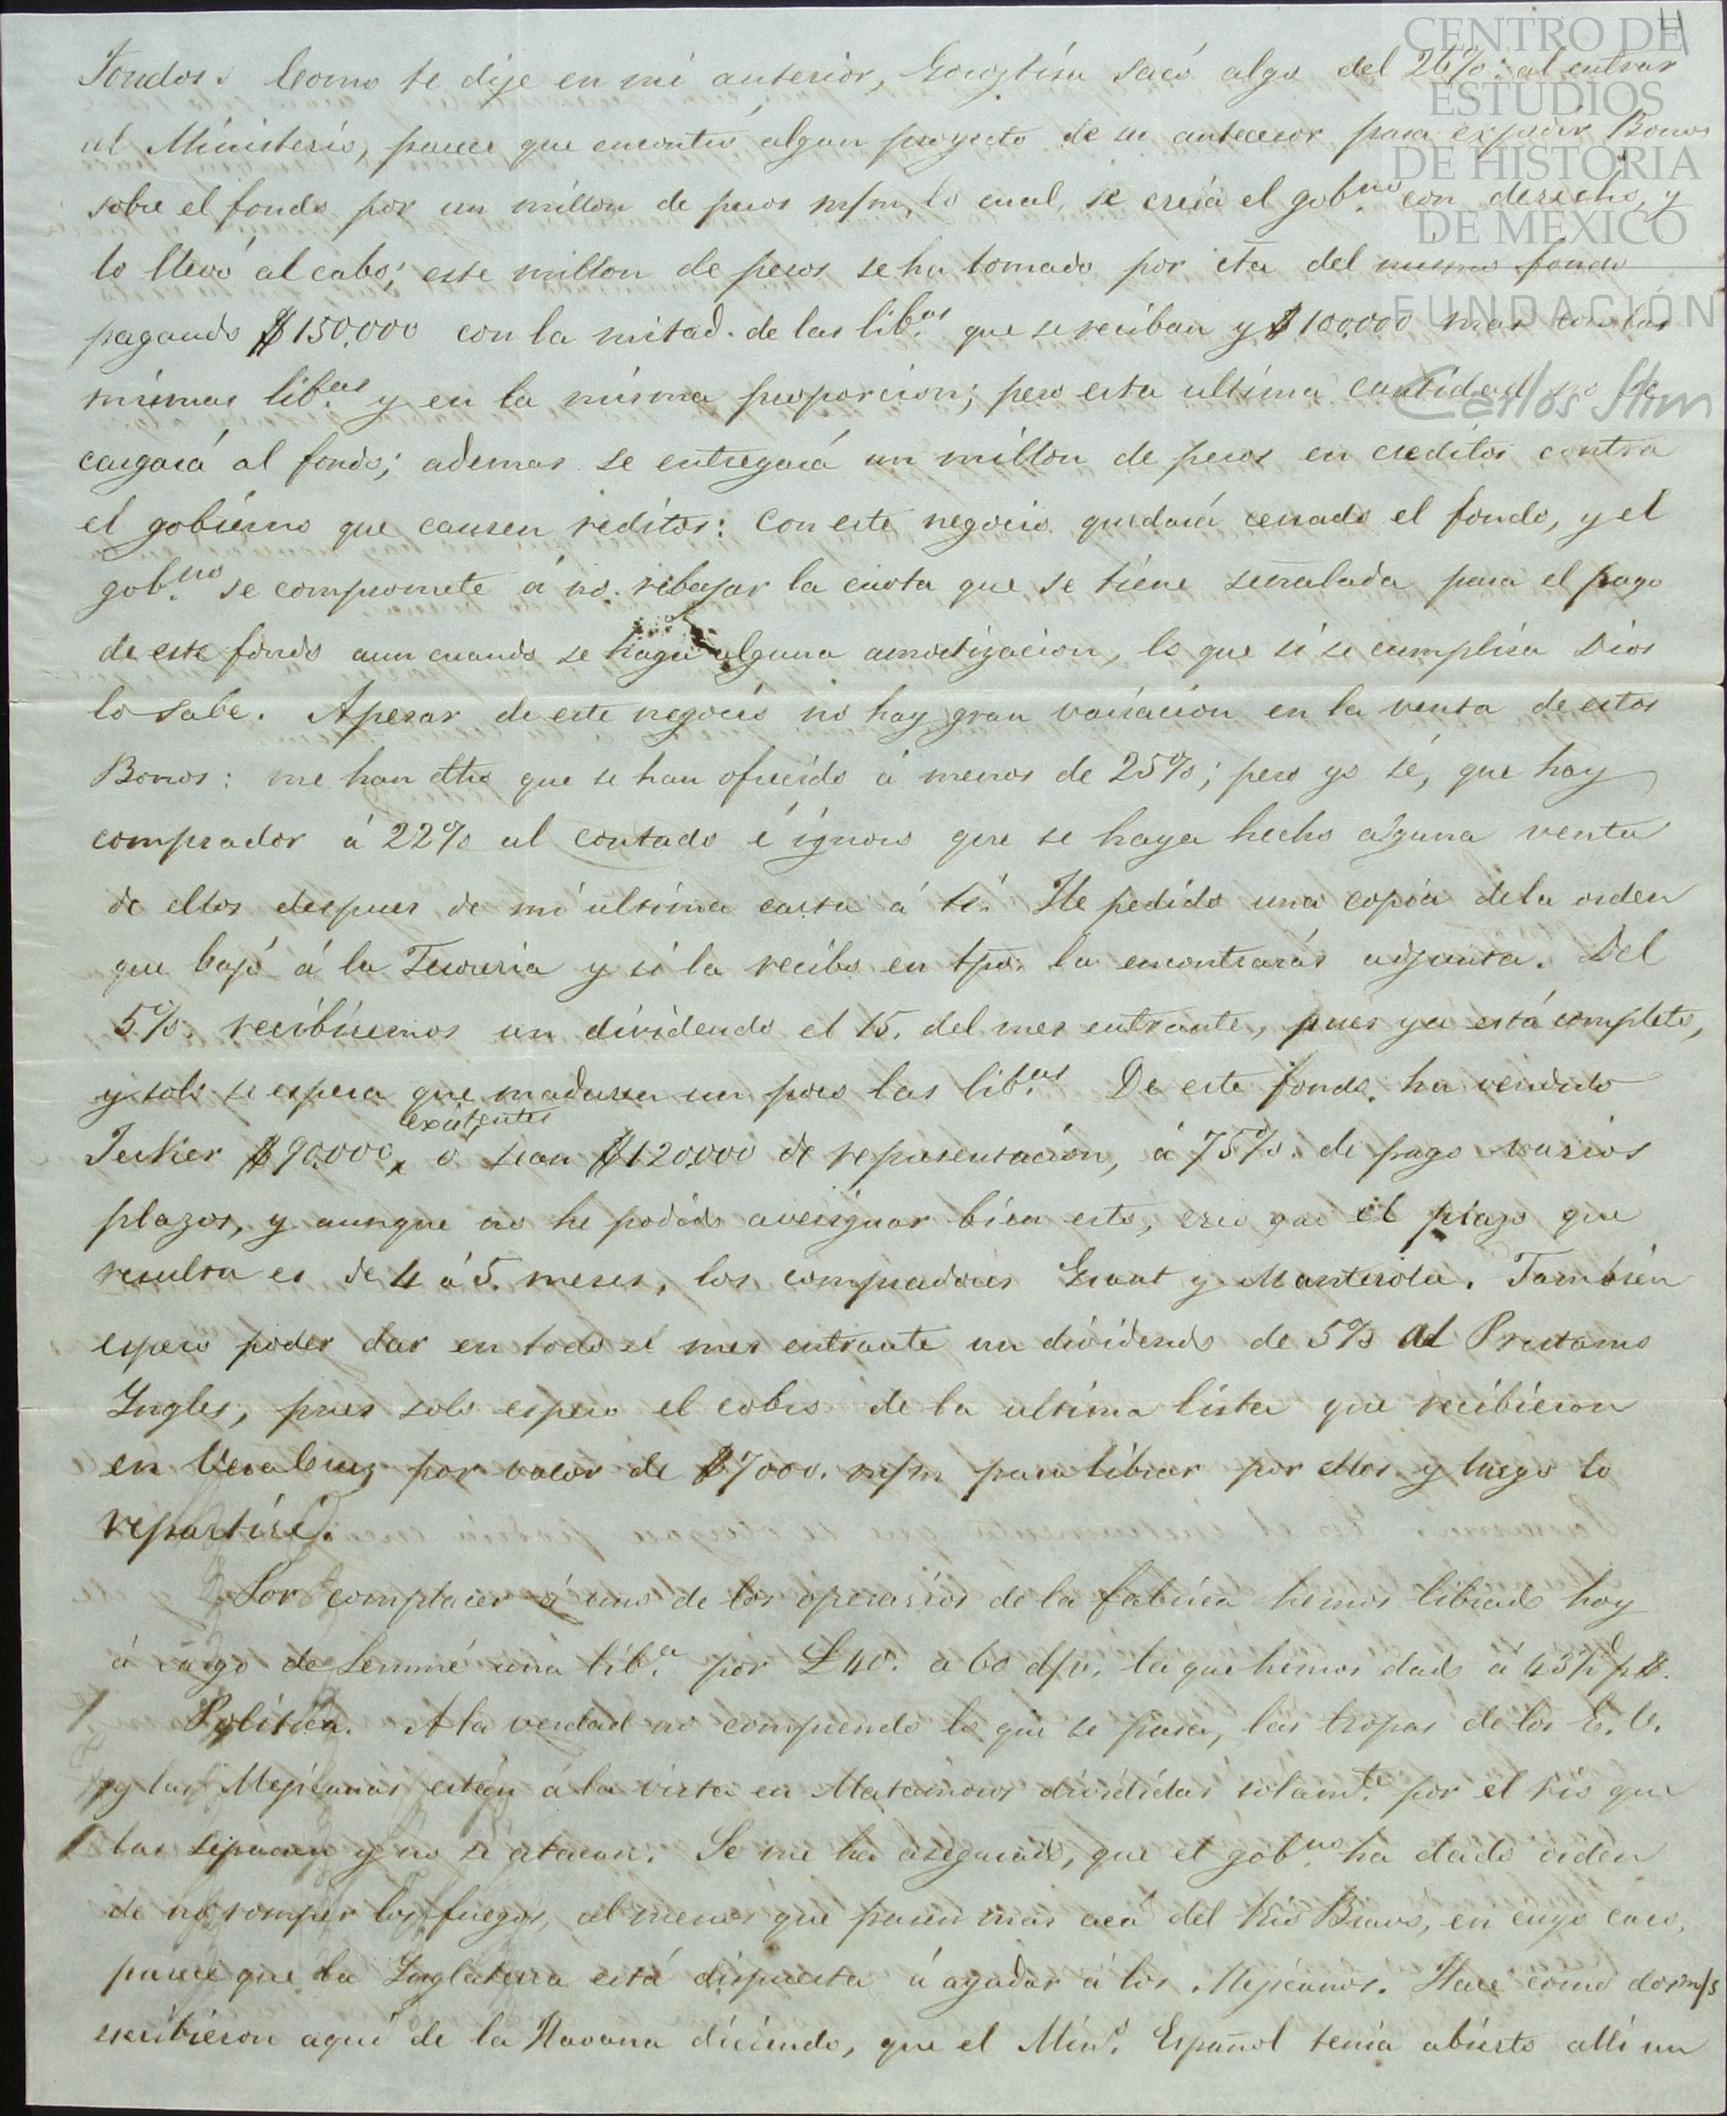 4
CENTRO DE
ESTUDIOS
DE HISTORIA
DE MÉXICO
FUNDACIÓN
Carlos Slim
Fondos. Como te dije en mi anterior, Gorostisa sacó algo del 26%: al entrar
al Ministerio, parece que encontró algun proyecto de su antecesor para expedir Bonos
sobre el fondo por un millon de pesos m/m, lo cual, se creía el gob.no con derecho, y
lo llevó al cabo; este millon de pesos se ha tomado por cta del mismo fondo
pagando $150.000 con la mitad de las lib.as que se reciban y $100.000 mas con las
mismas lib.as y en la misma proporcion; pero esta ultima cantidad no se
cargará al fondo; ademas se entregará un millon de pesos en creditos contra
el gobierno que causen reditos: Con este negocio quedará cerrado el fondo, y el
gob.no se compromete á no rebajar la cuota que se tiene señalada para el pago
de este fondo aun cuando se haga alguna amortizacion, lo que si se cumplirá Dios
lo sabe. Apesar de este negocio no hay gran variacion en la venta de estos
Bonos: me han dho que se han ofrecido á menos de 25%; pero yo sé, que hay
comprador á 22% al contado é ignoro que se haya hecho alguna venta
de ellos despues de mi ultima carta á ti. He pedido una copia dela orden
que bajó á la Tesoreria y si la recibo en tpo. la encontrarás adjunta. Del
5%. recibiremos un dividendo el 15. del mes entrante, pues ya está completo,
y solo se espera que maduren un poco las lib.as De este fondo ha vendido
Jecker $90.000 existentes, ó sean $120.000 de representacion, á 75%. de pago varios
plazos, y aunque no he podido averiguar bien esto, creo que el plazo que
resulta es de 4 á 5. meses, los compradores Grant y Manterola. Tambien
espero poder dar en todo el mes entrante un dividendo de 5% al Prestamo
Ingles, pues solo espero el cobro de la ultima lista que recibieron
en VeraCruz por valor de $7000. m/m para librar por ellos y luego lo
repartiré.
Por complacer á uno de los operarios de la fabrica hemos librado hoy
á cargo de Lemmé una lib.a por £40. a 60 d/v. la que hemos dado á
Politica. A la verdad no comprendo lo que se pasa, las tropas de los E.U.
y las Mejicanas están á la vista en Matamoros divididas solam.te por el rio que
las separan y no se atacan. Se me ha asegurado, que el gob.no ha dado orden
de no romper los fuegos, al menos que pasen mas acá del Rio Bravo, en cuyo caso,
parece que la Inglaterra está dispuesta á ayudar á los Mejicanos. Hace como dos m/s
escribieron aqui de la Havana diciendo, que el Min.o Español tenia abierto alli un